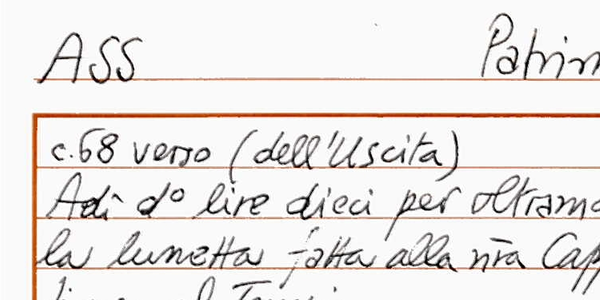 ASS Patrim
c.68 verso (dell'Uscita)
Adi d° lire dieci per oltrama
la lunetta fatta alla nra Capp